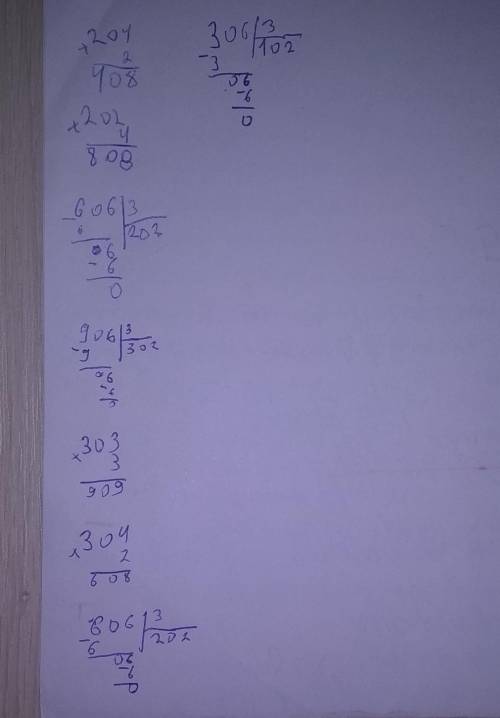 204
× 2
408
202
× 4
808
606 | 3
- 6 | 202
06
- 6
0
906 | 3
- 9 | 302
06
- 6
0
303
× 3
909
304
× 2
608
606 | 3
- 6 | 202
06
- 6
0
306 | 3
- 3 | 102
06
- 6
0